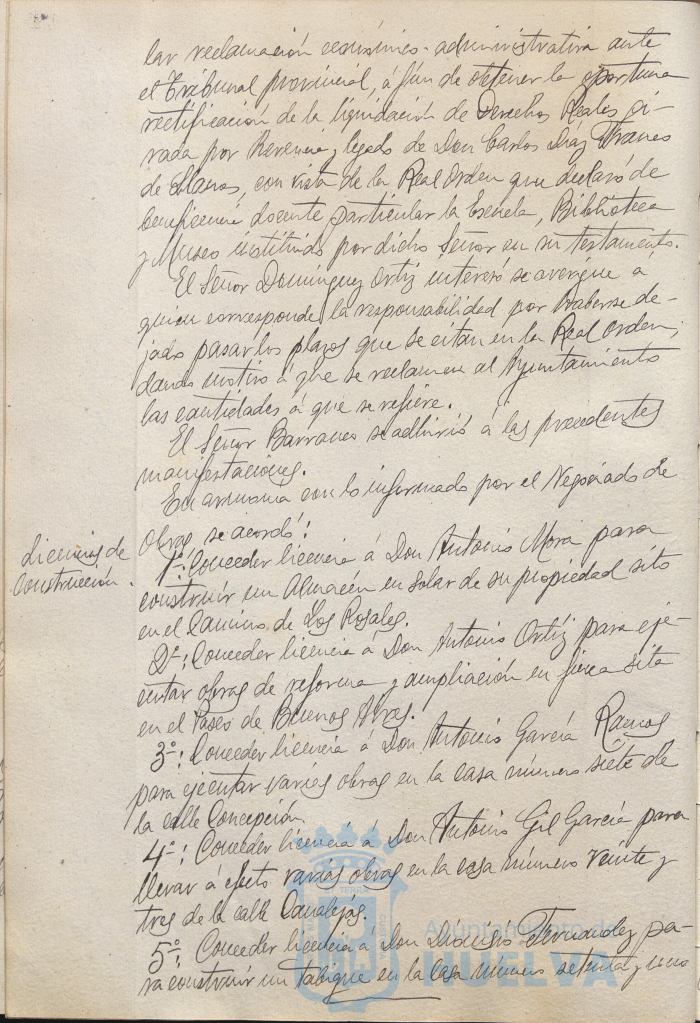 lar reclamación económico-administrativa ante
el Tribunal provincial, á fin de obtener la oportuna
rectificación de la liquidación de Derechos Reales gi-
rada por Herencia y legado de Don Carlos Díaz Franco
de Llanos, con vista de la Real Orden que declaró de
beneficencia docente particular la Escuela, Biblioteca
y Museo instituido por dicho Señor en su testamento.
El Señor Domínguez Ortiz interesó se averigüe á
quien corresponde la responsabilidad por haberse de-
jado pasar los plazos que se citan en la Real Orden,
dando motivo á que se reclamen al Ayuntamiento
las cantidades á que se refiere.
El Señor Barranco se adhirió á las precedentes
manifestaciones.
En armonía con lo informado por el Negociado de
Obras, se acordó:
Licencias de
construcción.
1º: Conceder licencia á Don Antonio Mora para
construir un Almacén en solar de su propiedad sito
en el Camino de Los Rosales.
2º: Conceder licencia á Don Antonio Ortiz para eje-
cutar obras de reforma y ampliación en finca sita
en el Paseo de Buenos Aires.
3º: Conceder licencia á Don Antonio García Ramos
para ejecutar varias obras en la casa número siete de
la calle Concepción.
4º: Conceder licencia á Don Antonio Gil García para
llevar á efecto varias obras en la casa número veinte y
tres de la calle Canalejas.
5º: Conceder licencia á Don Dionisio Fernandez pa-
ra construir un tabique en la casa número setenta y uno
Ayuntamiento de
HUELVA